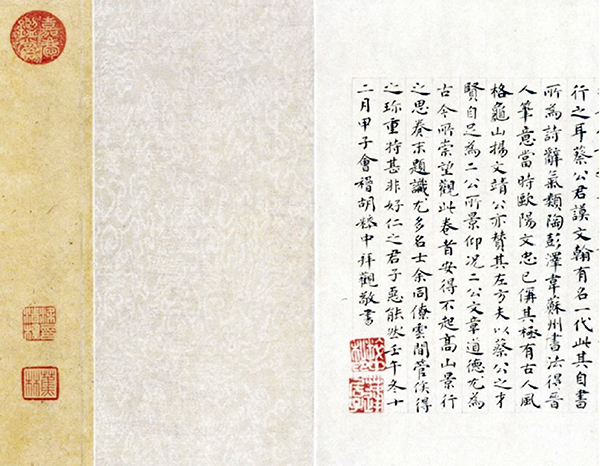 行之耳蔡公君謨文翰有名一代此其自書
所為詩辭氣類陶彭澤韋蘇州書法得晉
人筆意當時歐陽文忠已偁其極有古人風
格龜山楊文靖公亦贊其左方夫以蔡公之才
賢自足為二公所景仰况二公文章道德尤為
古今所崇望觀此卷者安得不起髙山景行
之思奏末題識尤多名士余同僚雲間管侯得
之珎重特甚非好仁之君子惡能然壬午冬十
二月甲子會稽胡粹中拜觀敬書
嘉慶鑑賞
蕉林